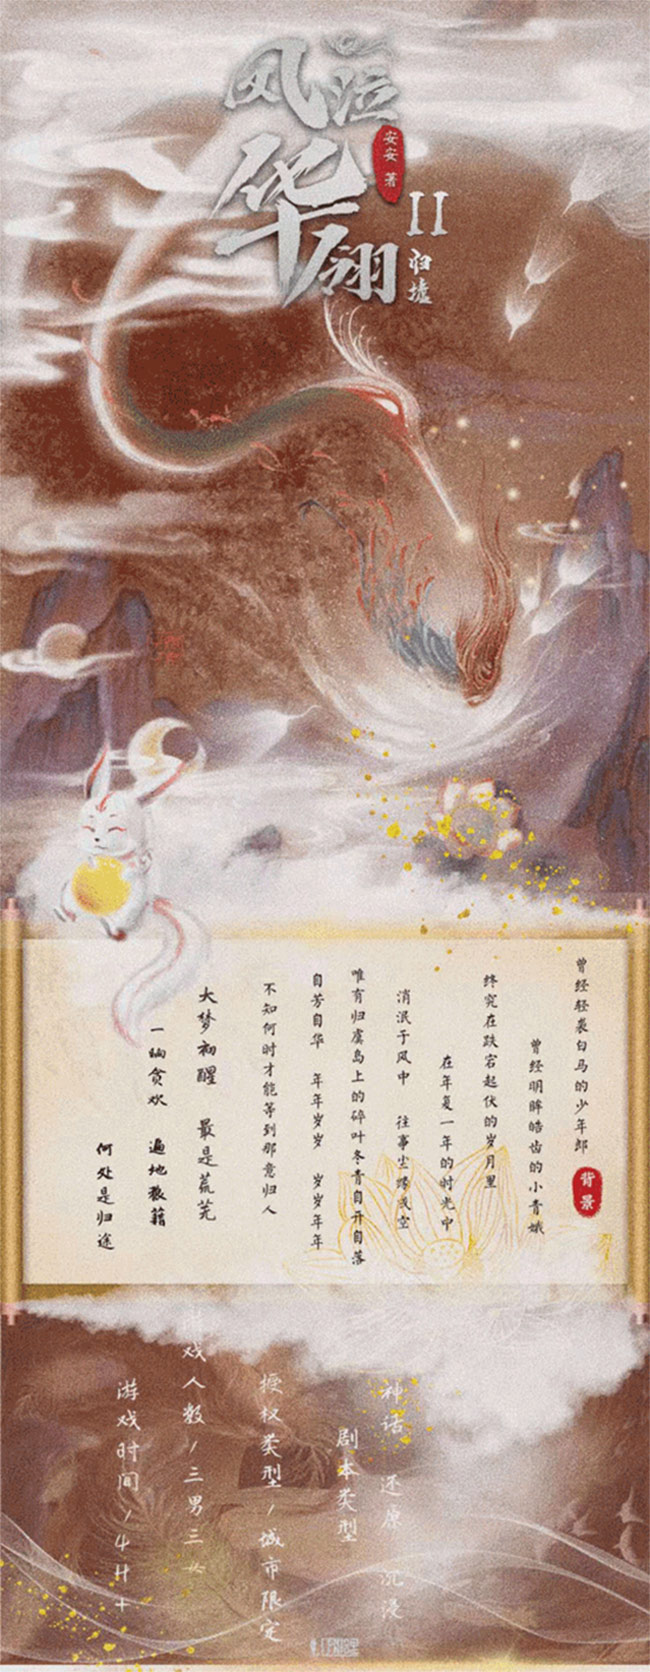 风泣
华翎
安安 著
II
归墟
背景
曾经轻裘白马的少年郎
曾经明眸皓齿的小青娥
终究在跌宕起伏的岁月里
在年复一年的时光中
消泯于风中 往事尘缘成空
唯有归虞岛上的碎叶冬青自开自落
自芳自华 年年岁岁 岁岁年年
不知何时才能等到那意归人
大梦初醒 最是荒芜
一晌贪欢 遍地狼藉
何处是归途
神话 还原 沉浸
剧本类型
授权类型/城市限定
游戏人数/三男三女
游戏时间/4H+